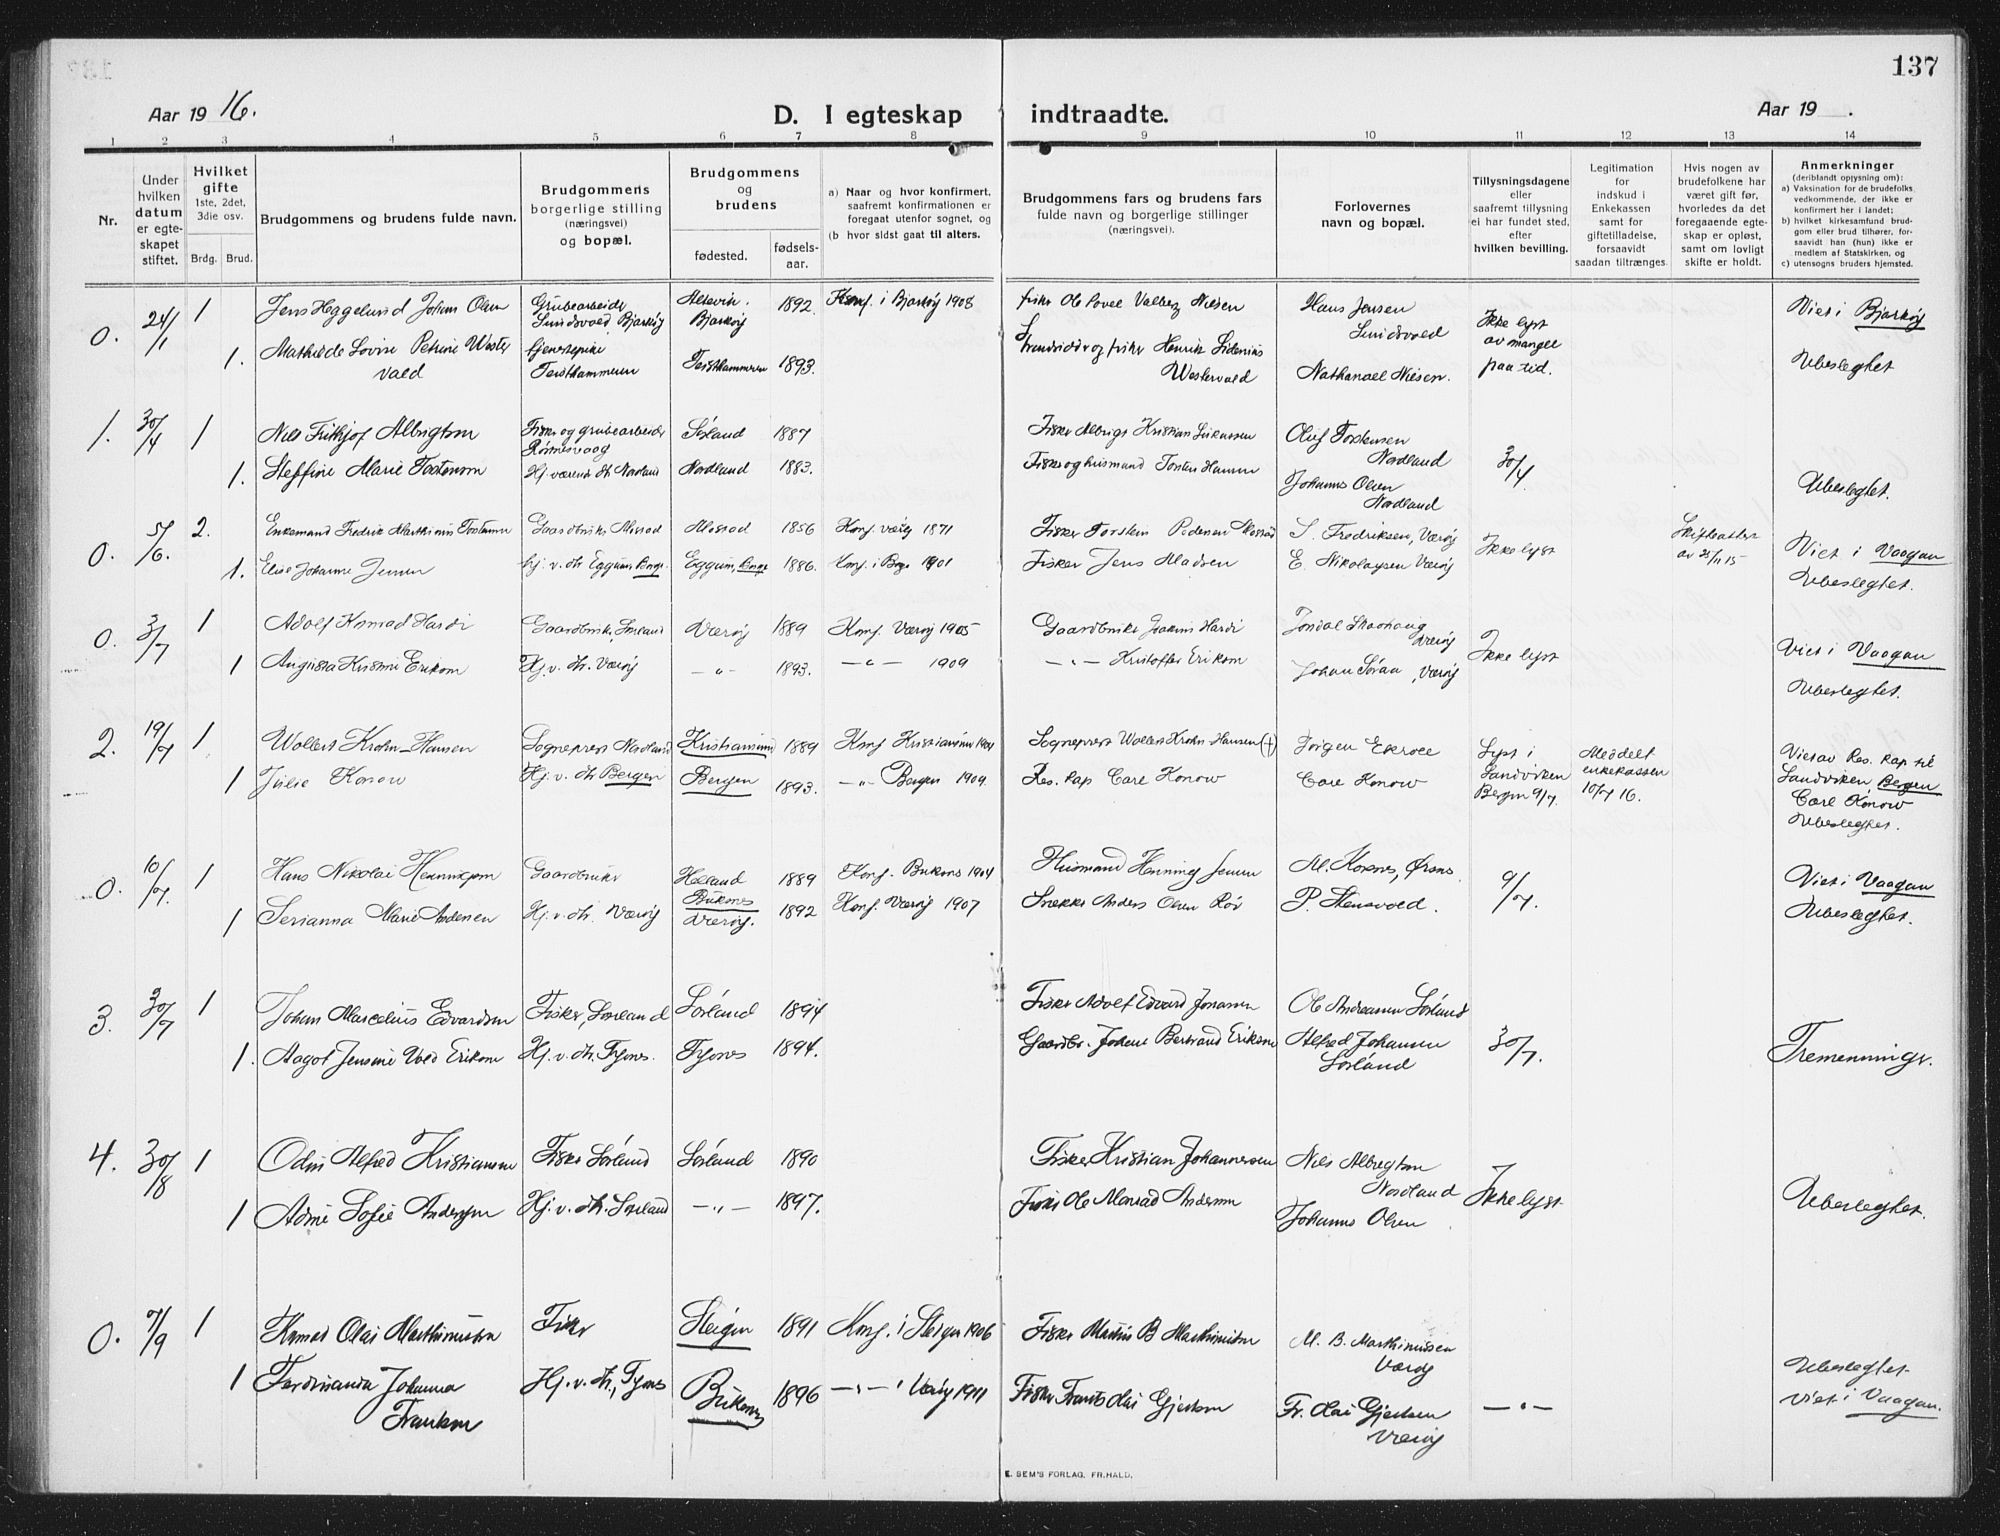 137
Aar 1916.
D. I egteskap indtraadte.
Aar 19 .
1 2 3 4 5 6 7 8 9 10 11 12 13 14
Nr.
Under hvilken datum er egteskapet stiftet.
Hvilket gifte 1ste, 2det, 3die osv.
Brdg. Brud.
Brudgommens og brudens fulde navn.
Brudgommens borgerlige stilling (næringsvei) og bopæl.
Brudgommens og brudens
fødested.
fødselsaar.
a) Naar og hvor konfirmert, saafremt konfirmationen er foregaat utenfor sognet, og
(b hvor sidst gaat til alters.
Brudgommens fars og brudens fars fulde navn og borgerlige stillinger (næringsvei).
Forlovernes navn og bopæl.
Tillysningsdagene eller saafremt tillysning ei har fundet sted, efter hvilken bevilling.
Legitimation for indskud i Enkekassen samt for giftetilladelse, forsaavidt saadan tiltrænges.
Hvis nogen av brudefolkene har været gift før, hvorledes da det foregaaende egteskap er opløst, samt om lovligt skifte er holdt.
Anmerkninger (deriblandt opjysning om):
a) Vaksination for de brudefolks vedkommende, der ikke er konfirmert her i landet;
b) hvilket kirkesamfund brudgom eller brud tilhører, forsaavidt han (hun) ikke er medlem af Statskirken, og
c) utensogns bruders hjemsted.
0. 24/1 1 Jens Heggelund Johan Olsen Grubearbeider Sundsvold Bjarkøy Bjarkøy 1892. Konf. i Bjarkøy 1908 fisker Ole Povel Valberg Nilsen Hans Jensen Sundsvold Ikke lyst av mangel paa tid. Viet i Bjarkøy
1. Mathilde Lovise Petrine Westervald tjenestepike Teisthammeren Teisthammeren 1893. Strandsidder og fisker Henrik Sidenius Westervald Nathanael Nilsen. Ubeslegtet
1. 30/4 1 Nils Frithjof Albrigtsen Fisker og grubearbeider Sørland 1887 Fisker Albrigt Kristian Lukassen Oluf Torstensen Nordland 30/4
1. Steffine Marie Torstensen Hj. værende dtr. Nordland Nordland 1883. Fisker og husmand Torsten Hansen Johannes Olsen Nordland Ubeslegtet.
0. 5/6. 2. Enkemand Fredrik Marthinus Torstensen Gaardbruker Mostad Mostad 1856 Konf. Værøy 1871 Fisker Torstein Pedersen Mostad S. Fredriksen, Værøy Ikke lyst Skifteattest av 25/11 15 Viet i Vaagan
1. Elise Johanne Jensen hj. v. dtr Eggum, Borge Eggum, Borge 1886. Konf. i Borge 1901 Fisker Jens Madsen E. Nikolaysen Værøy Ubeslegtet.
0. 3/7 1 Adolf Konrad Hardi Gaardbruk., Sørland Værøy 1889 Konf. Værøy 1905 Gaardbruker Joakim Hardi Værøy Ikke lyst Viet i Vaagan
1 Augusta Kristine Eriksen Hj. v. dtr. Værøy – " – 1893. – " – 1909 – " – Kristoffer Eriksen Johan Søraa, Værøy Ubeslegtet.
2. 19/7 1 Wollert Krohn-Hansen Sogneprest Nordland Kristiansund 1889 Konf Kristiansund 1904 Sogneprest Wollert Krohn Hansen (+) Jørgen Lyst i Sandviken Bergen 9/7. Meddelt enkekassen 10/7 16. Viet av Res. Kap til Sandviken, Bergen Carl Konow
1 Julie Konow Hj. v. dtr Bergen Bergen 1893. – " – Bergen 1909 Res. Kap Carl Konow Carl Konow Ubeslegtet.
0. 10/7. 1 Hans Nikolai Henningsen Gaardbruker Buksnes 1889 Konf. Buksnes 1904 Husmand Henning Jensen M. 9/7. Viet i Vaagan
1 Serianna Marie Andersen Hj. v. dtr. Værøy Værøy. 1892 Konf. Værøy 1907 Snekker Anders Olsen Røv P. Stensvold. Ubeslegtet.
3. 30/7 1 Johan Marcelius Edvardsen Fisker, Sørland Sørland 1894 Fisker Adolf Edvard Jonassen Ole Andreassen Sørland 30/7.
1. Aagot Jensine Vold Eriksen Hj. v. dtr. Tyvnes. Tyvnes 1894. Gaardbr. Johan Bertrand Eriksen Alfred Johansen Sørland Tremenninger.
4. 30/8 1 Odin Alfred Kristiansen Fisker Sørland Sørland 1890 Fisker Kristian Johannessen Nils Albregtsen Nordland Ikke lyst
1 Adine Sofie Andersen Hj. v. dtr. Sørland – " – 1897. Fisker Ole Monrad Andersen Johannes Olsen Ubeslegtet.
0. 7/9 1 Konrad Olai Marthinussen Fisker Steigen 1891 Konf. i Steigen 1906 Fisker Martin B Marthinussen M. B. Marthinussen Værøy
1 Ferdinanda Johanna Frantsen Hj. v. dtr., Tyvnes Buksnes 1896 – " – Værøy 1911 Fisker Frants Olai Gjertsen Fr. Olai Gjertsen Værøy – " – Ubeslegtet. Viet i Vaagan.
E. SEM'S FORLAG, FR.HALD.